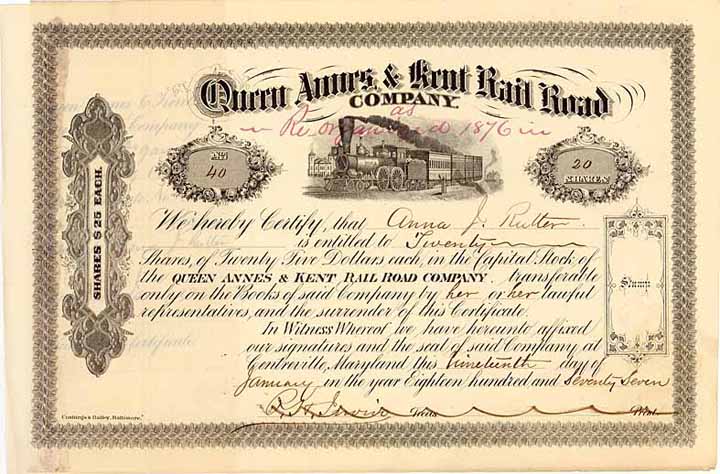 Queen Annes & Kent Rail Road
COMPANY.
as
Re organized 1876
No.
40
20
SHARES
SHARES $25 EACH.
We hereby Certify, that Anna J. Rutter
is entitled to Twenty
Shares, of Twenty Five Dollars each, in the Capital Stock of
the QUEEN ANNES & KENT RAIL ROAD COMPANY, transferable
only on the Books of said Company by her or her lawful
representatives, and the surrender of this Certificate.
Stamp
In Witness Whereof we have hereunto affixed
our signatures and the seal of said Company at
Centreville, Maryland this nineteenth day of
January in the year Eighteen hundred and Seventy Seven
Treas. Prest.
Cushings & Bailey, Baltimore.